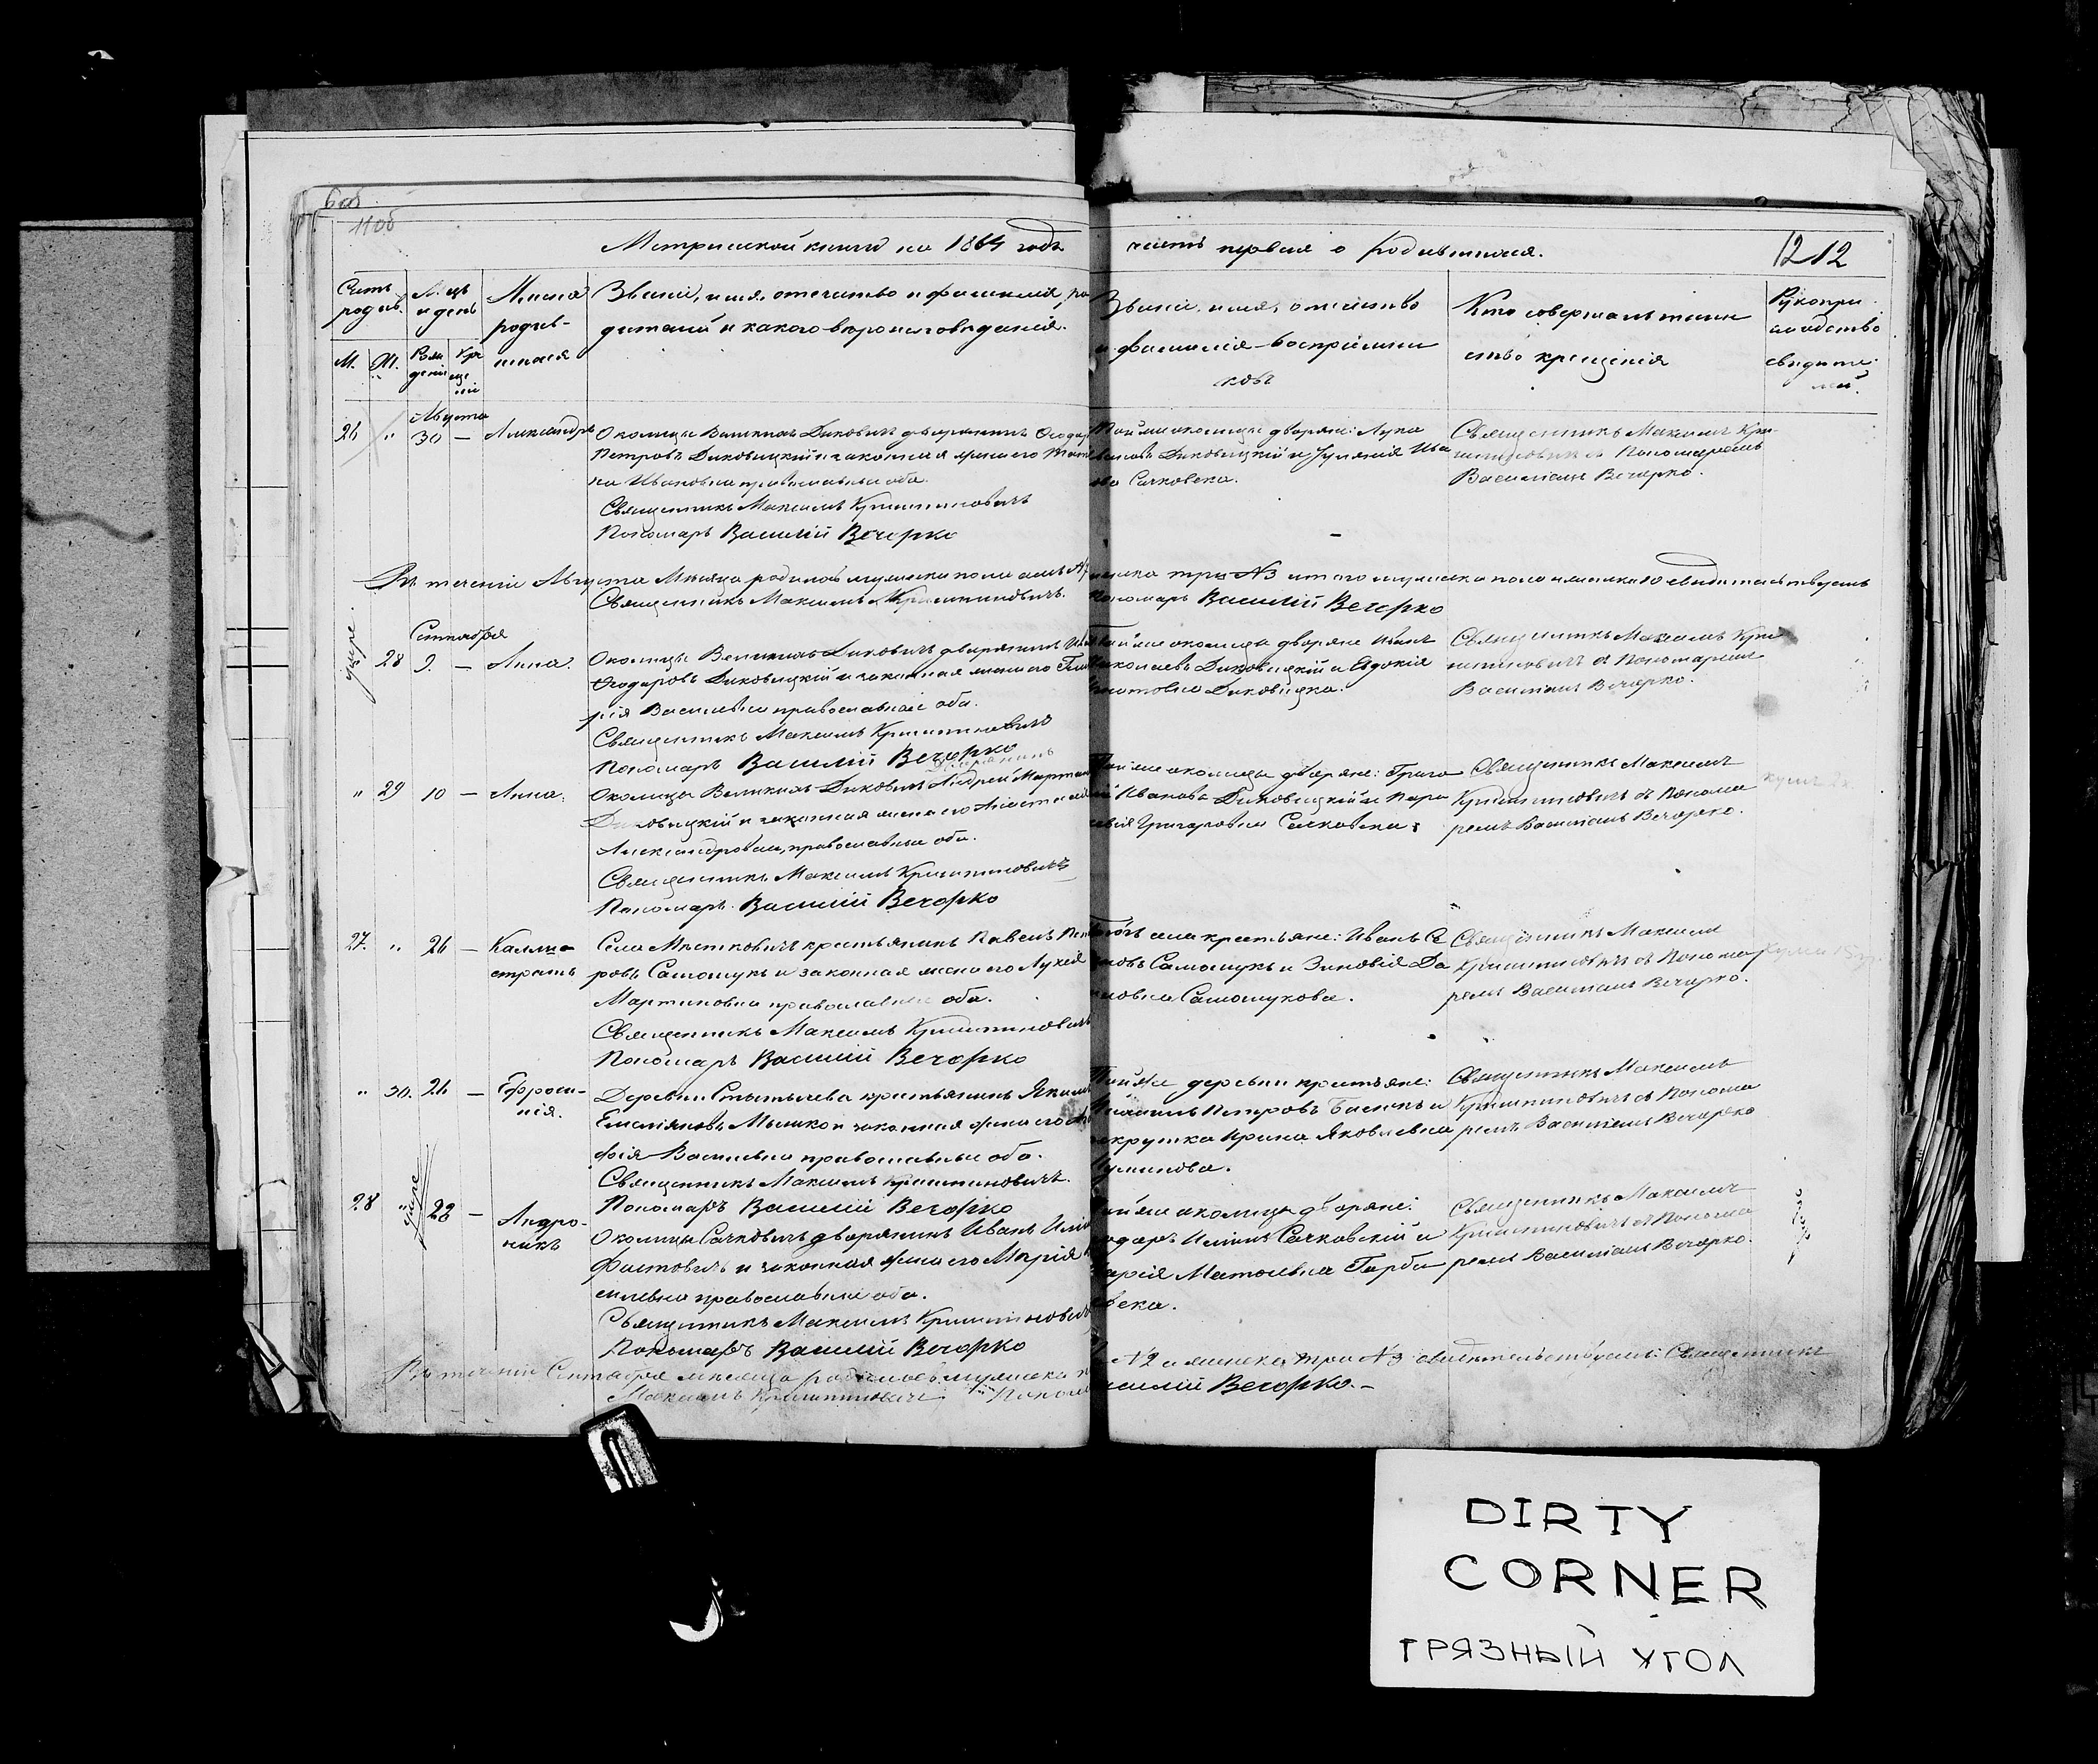 11об
Метрической книги на 1864 годъ
часть первая о родившихся.
12 12
Счетъ родив.
М. Ж.
М-цъ и день
Рожденія Крещенія
Имена родившихся
Званіе, имя, отечество и фамилія ро
дителей и какого вѣроисповѣданія.
Званіе, имя, отчество
и фамилія воспріемни
ковъ
Кто совершалъ таин
ство крещенія
Рукопри
кладство
свидѣте
лей.
Августа
26 " 30 — Александръ
Околицы Великихъ Диковичъ дворянинъ Ѳеодоръ
Петровъ Диковицкій и законная жена его
на Ивановна православные оба.
Священникъ Максимъ Криштиновичъ
Пономарь Василій Вечорко
Той же околицы дворяне: Лука
Диковицкій и Іулянія Ива
Сачковска.
Священникъ Максимъ Кри
штиновичъ съ Пономаремъ
Василіемъ Вечорко.
Въ теченіи Августа Мѣсяца родилось мужеска пола
женска три №3 итого мужеска пола и женска 10 свидѣтельствуемъ
Священникъ Максимъ Криштиновичъ.
Пономарь Василій Вечорко
умре
Сентября
28 9. — Анна.
Околицы Великихъ Диковичъ дворянинъ
Ѳеодоровъ Диковицкій и законная жена его
рія Васильева православные оба.
Священникъ Максимъ Криштиновичъ
Пономарь Василій Вечорко
Той же околицы дворяне Иванъ
Николаевъ Диковицкій и Евдокія
Диковицка.
Священникъ Максимъ Кри
штиновичъ съ Пономаремъ
Василіемъ Вечорко.
" 29 10 — Анна.
дворянинъ
Околицы Великихъ Диковичъ Андрей Мартин
Диковицкій и законная жена его Анастасія
Александрова, православные оба.
Священникъ Максимъ Криштиновичъ
Пономарь Василій Вечорко
Той же околицы дворяне: Григо
рій Ивановъ Диковицкій и Пара
скевія Григорова Сачковска.
Священникъ Максимъ
Криштиновичъ съ Понома
ремъ Василіемъ Вечорко.
27. " 26 — Калли-
стратъ
Села Мѣстковичъ крестьянинъ Павелъ Пет
ровъ Самошукъ и законная жена его Лукія
Мартиновна православные оба.
Священникъ Максимъ Криштиновичъ
Пономарь Василій Вечорко
Того жъ села крестьяне: Иванъ Се
Самошукъ и Зиновія Да
Самошукова.
Священникъ Максимъ
Криштиновичъ съ Понома
ремъ Василіемъ Вечорко.
" 30. 26 — Ефроси-
нія.
Деревни Стытычева крестьянинъ Якимъ
Емельяновъ Мышко и законная жена его
фія Васильева православные оба.
Священникъ Максимъ Криштиновичъ.
Пономарь Василій Вечорко
Той же деревни крестьяне:
Петровъ и
рекрутка Ирина Яковлевна
Священникъ Максимъ
Криштиновичъ съ Понома
ремъ Василіемъ Вечорко
умре
28 " 28 — Андро-
никъ
Околицы Сачковичъ дворянинъ Иванъ
Фастовичъ и законная жена его Марія
православные оба.
Священникъ Максимъ Криштиновичъ
Пономарь Василій Вечорко
Той же околицы дворяне:
Ѳеодоръ Сачковскій и
Марія Матвѣевна Горба
чевска.
Священникъ Максимъ
Криштиновичъ съ Понома
ремъ Василіемъ Вечорко.
Въ теченіи Сентября мѣсяца родилось мужеска
№2 и женска три №3 свидѣтельствуемъ: Священникъ
Максимъ Криштиновичъ Пономарь
Василій Вечорко.—
DIRTY
CORNER
ГРЯЗНЫЙ УГОЛ